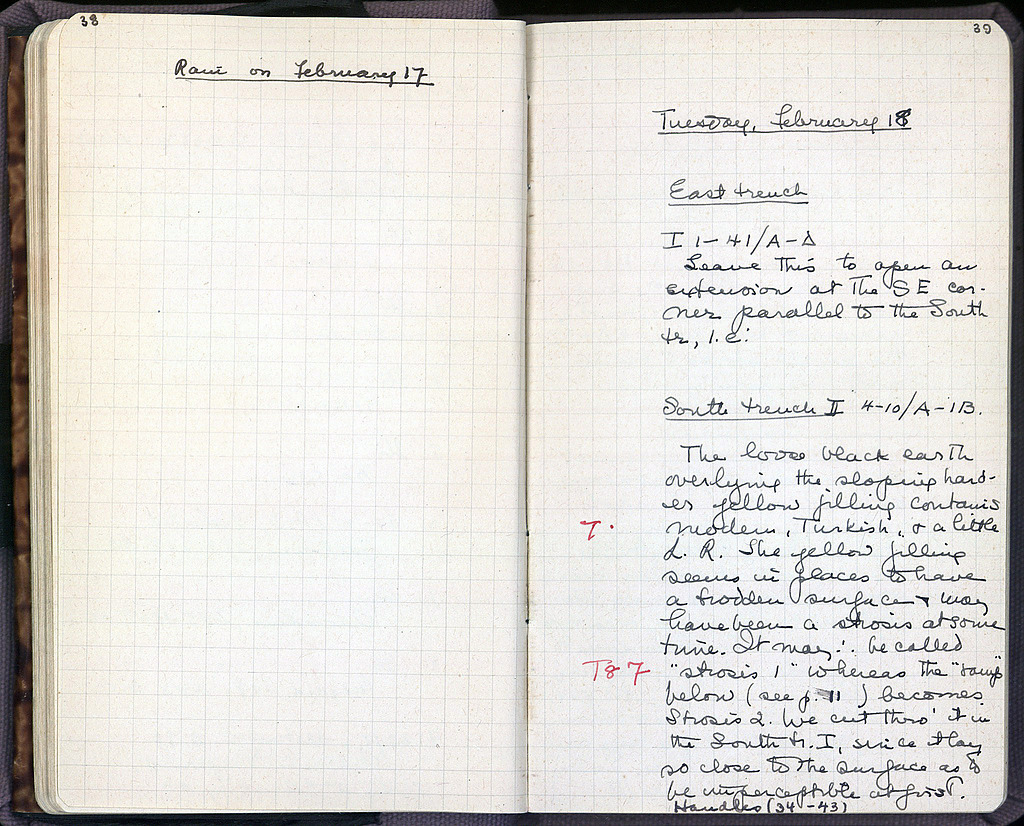 38
Rain on February 17
39
Tuesday, February 18
East trench
I 1-41/A-Δ
Leave this to open an
extension at the SE cor-
ner parallel to the South
tr., i.e:
South trench II 4-10/A-IB.
The loose black earth
overlying the sloping hard-
er yellow filling contains
modern, Turkish, & a little
L. R. The yellow filling
seems in places to have
a trodden surface & may
have been a strosis at some
time. It may ∴ be called
"strosis 1" whereas the "ramp"
below (see p. 11) becomes
Strosis 2. We cut thro' it in
the South tr. I, since it lay
so close to the surface as to
be imperceptible at first.
Handles (34-43)